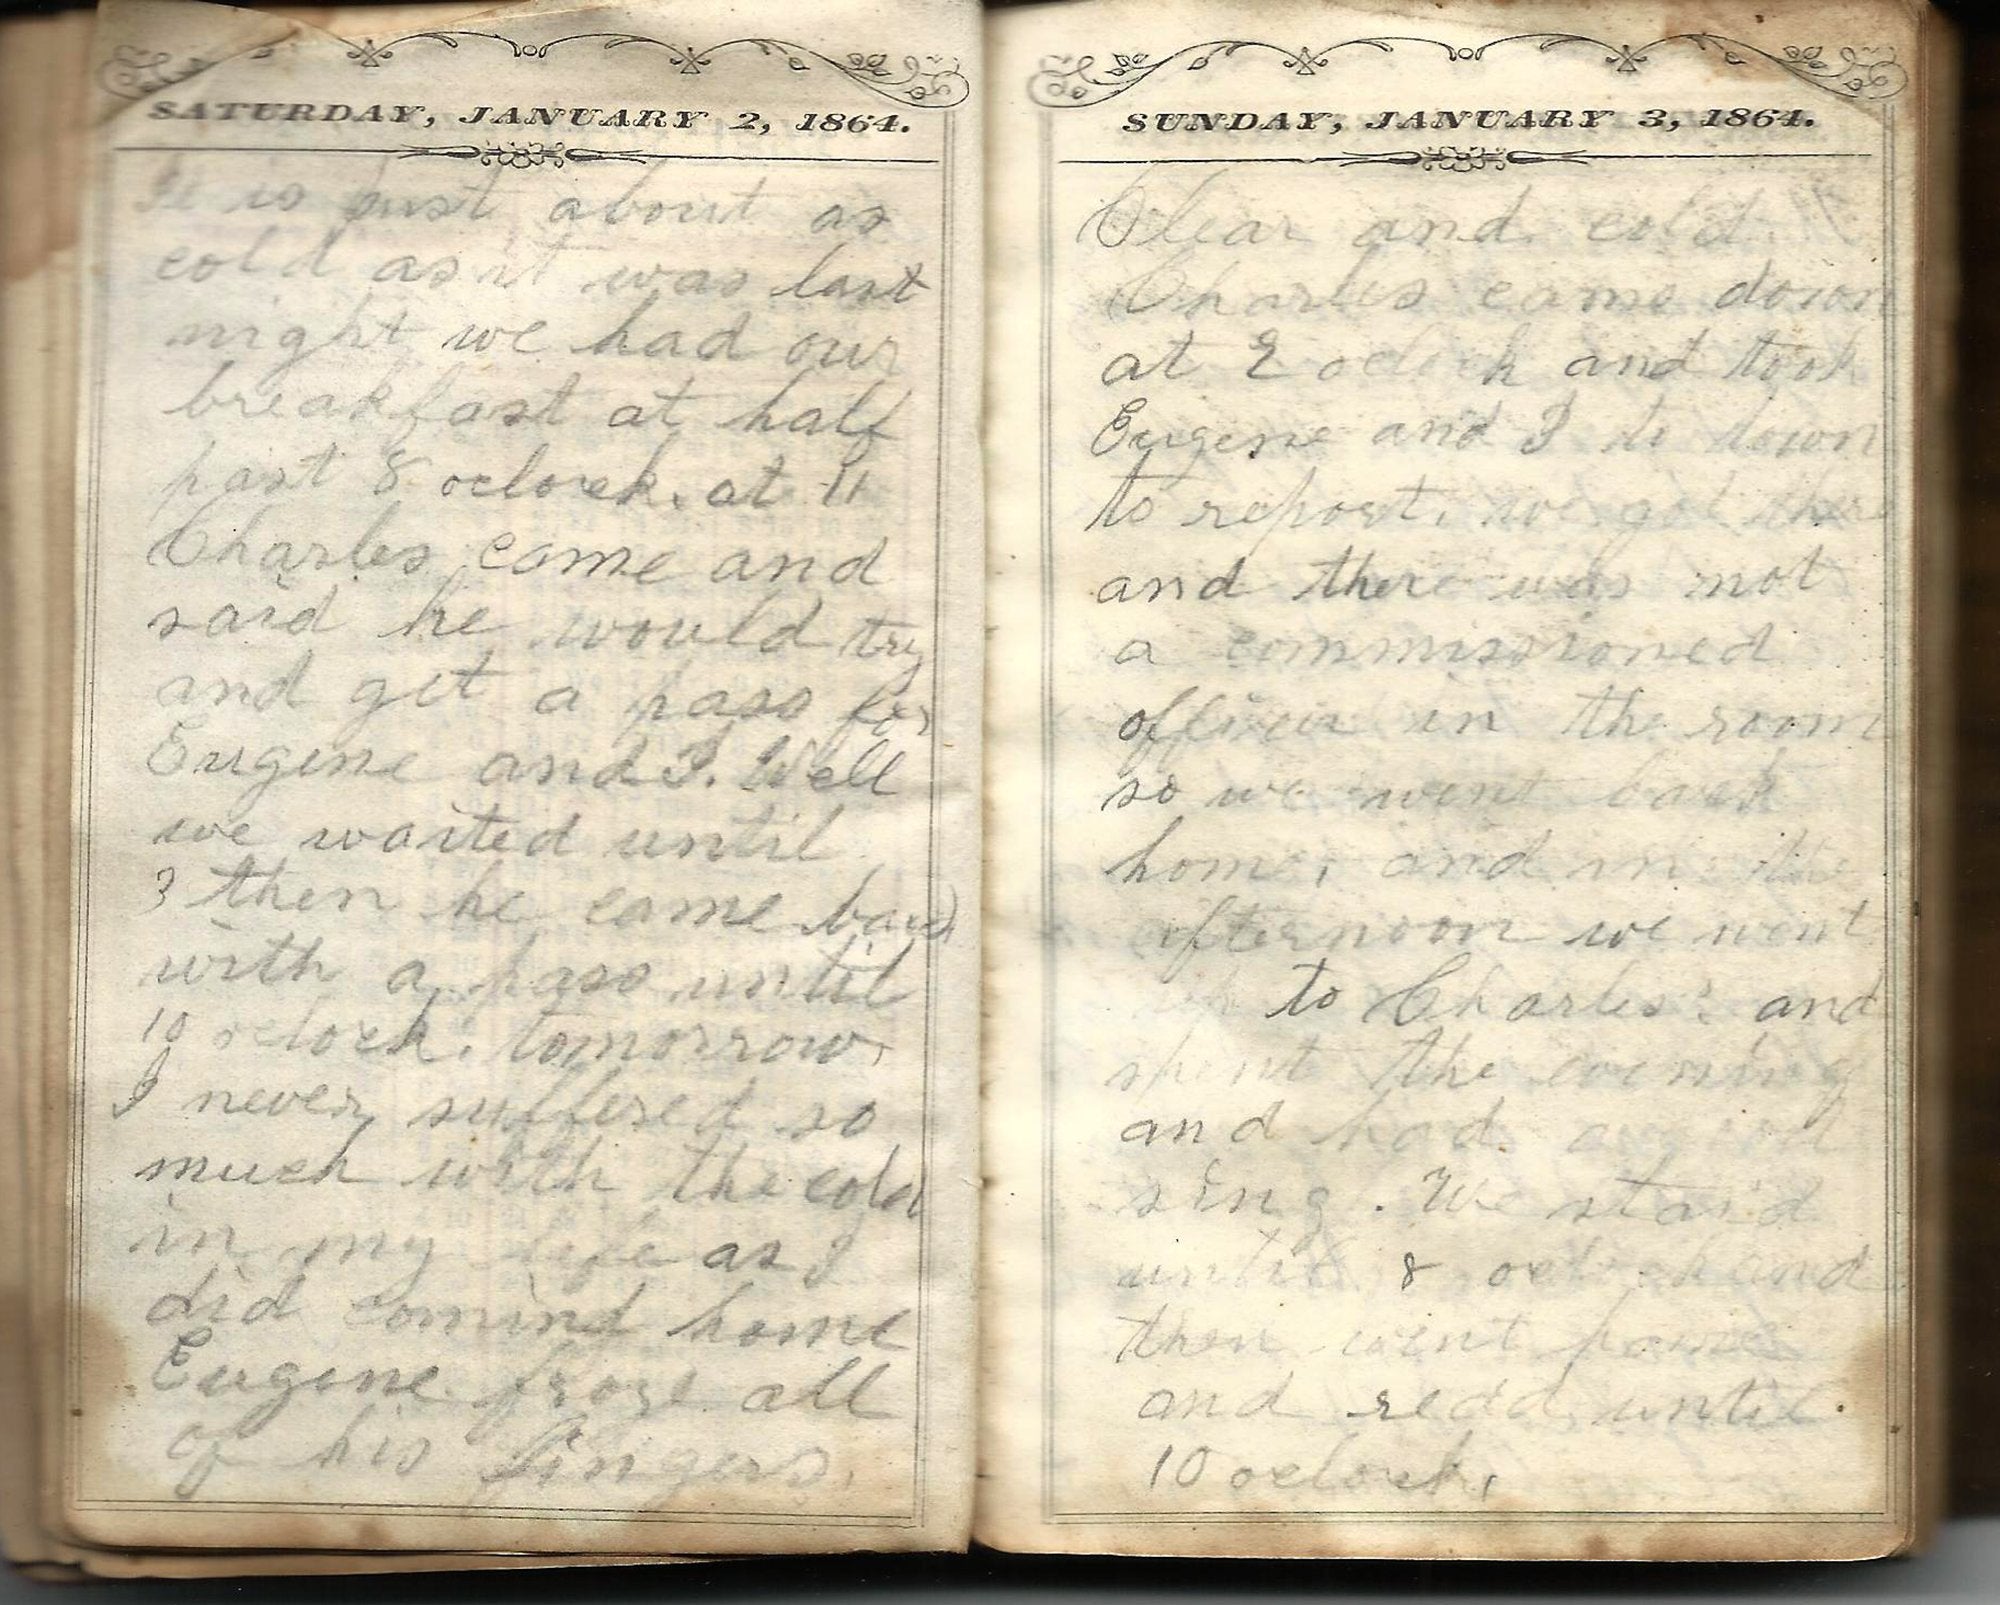 SATURDAY, JANUARY 2, 1864.
It is just about as
cold as it was last
night we had our
breakfast at half
past 8 oclock. at 11
Charles came and
said he would try
and get a pass for
Eugene and I. Well
we waited until
3 then he came back
with a pass until
10 oclock. tomorrow.
I never suffered so
much with the cold
in my life as I
did comind home
Eugene froze all
of his fingers.
SUNDAY, JANUARY 3, 1864.
Clear and cold
Charles came down
at oclock and took
Eugene and I to down
to report. we got there
and there was not
a commissioned
officer in the room
so we went back
home, and in the
afternoon we went
up to Charles' and
spent the evening
and had a good
sing. We staid
until 8 oclock and
then went home
and redd until
10 oclock.